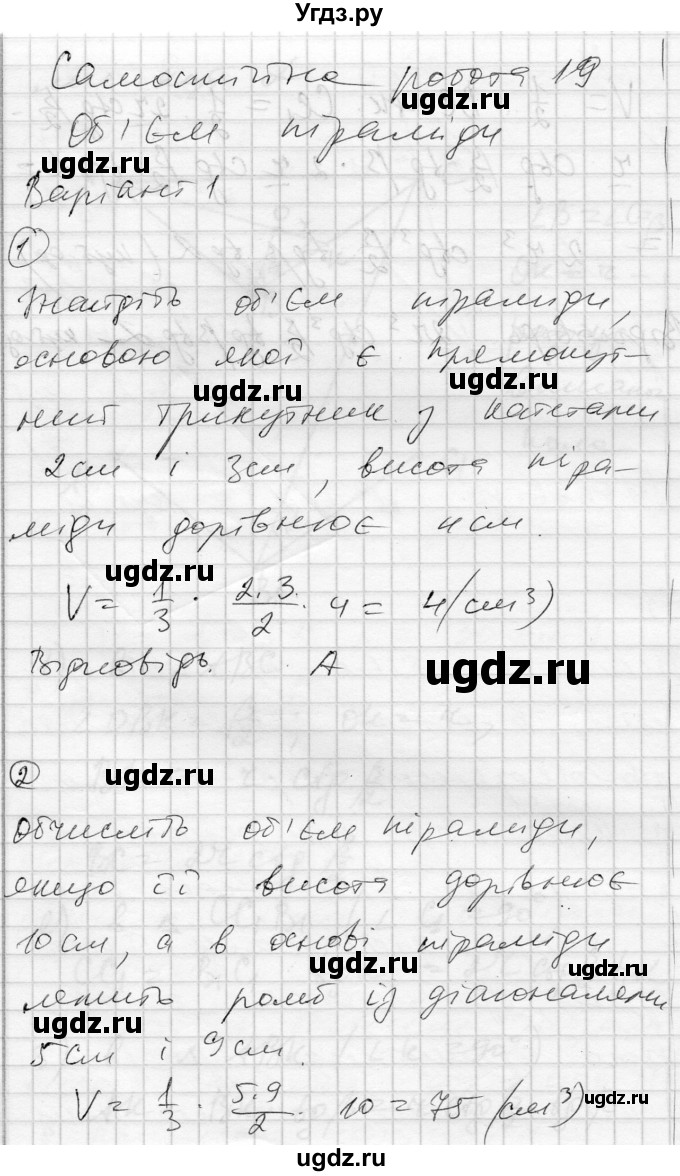 Угдз.ру
Самостійна робота 19
Об'єм піраміди
Варіант 1
1
Знайдіть об'єм піраміди,
основою якої є прямокут-
ний трикутник з катетами
2 см і 3 см, висота піра-
міди дорівнює 4 см.
V = 1/3 · 2·3/2 · 4 = 4 (см³)
Відповідь. А
2
Обчисліть об'єм піраміди,
якщо її висота дорівнює
10 см, а в основі піраміди
лежить ромб із діагоналями
5 см і 9 см.
V = 1/3 · 5·9/2 · 10 = 75 (см³)
ugdz.ru
ugdz.ru
ugdz.ru
ugdz.ru
ugdz.ru
ugdz.ru
ugdz.ru
ugdz.ru
ugdz.ru
ugdz.ru
ugdz.ru
ugdz.ru